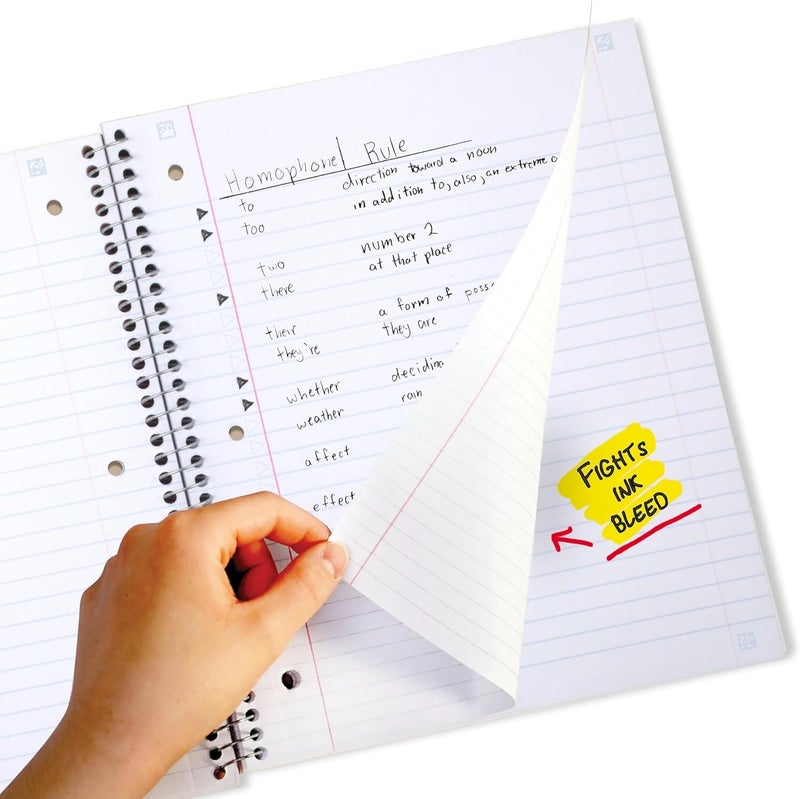 Homophone | Rule
to direction toward a noun
too in addition to, also, an extreme
two number 2
there at that place
their a form of
they're they are
whether
weather rain
affect
effect
FIGHTS
INK
BLEED